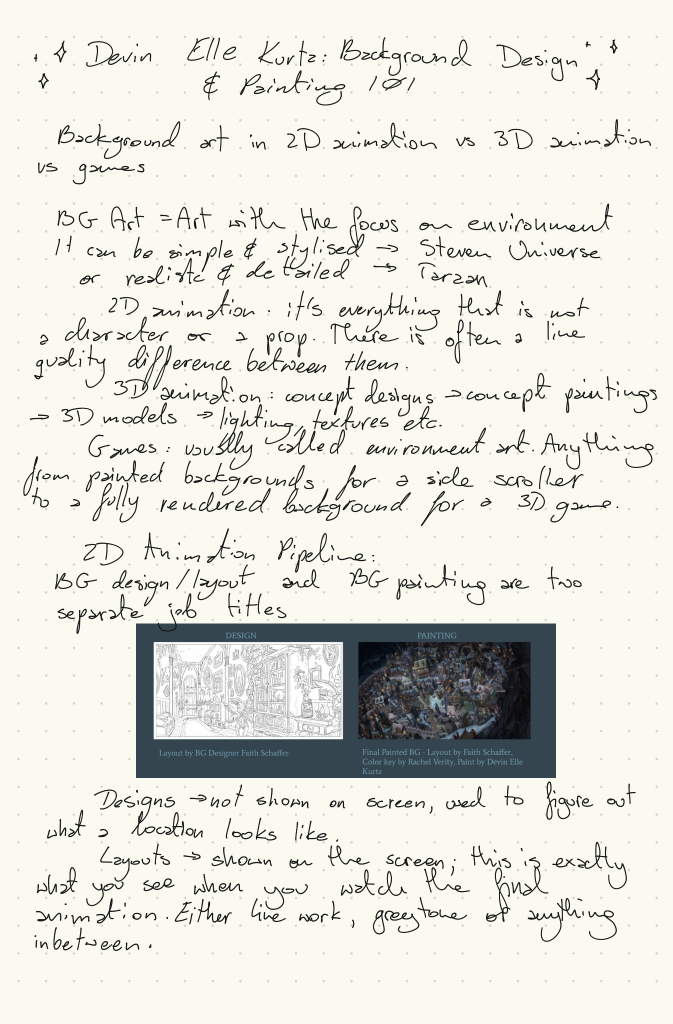 Devin Elle Kurtz: Background Design
& Painting 101
Background art in 2D animation vs 3D animation
vs games
BG Art = Art with the focus on environment
It can be simple & stylised → Steven Universe
or realistc & detailed → Tarzan
2D animation: it's everything that is not
a character or a prop. There is often a line
quality difference between them.
3D animation: concept designs → concept paintings
→ 3D models → lighting, textures etc.
Games: usually called environment art. Anything
from painted backgrounds for a side scroller
to a fully rendered background for a 3D game.
2D Animation Pipeline:
BG design/layout and BG painting are two
separate job titles
DESIGN
PAINTING
Layout by BG Designer Faith Schaffer
Final Painted BG - Layout by Faith Schaffer,
Color key by Rachel Verity, Paint by Devin Elle
Kurtz
Designs → not shown on screen, used to figure out
what a location looks like.
Layouts → shown on the screen; this is exactly
what you see when you watch the final
animation. Either line work, greytone or anything
inbetween.